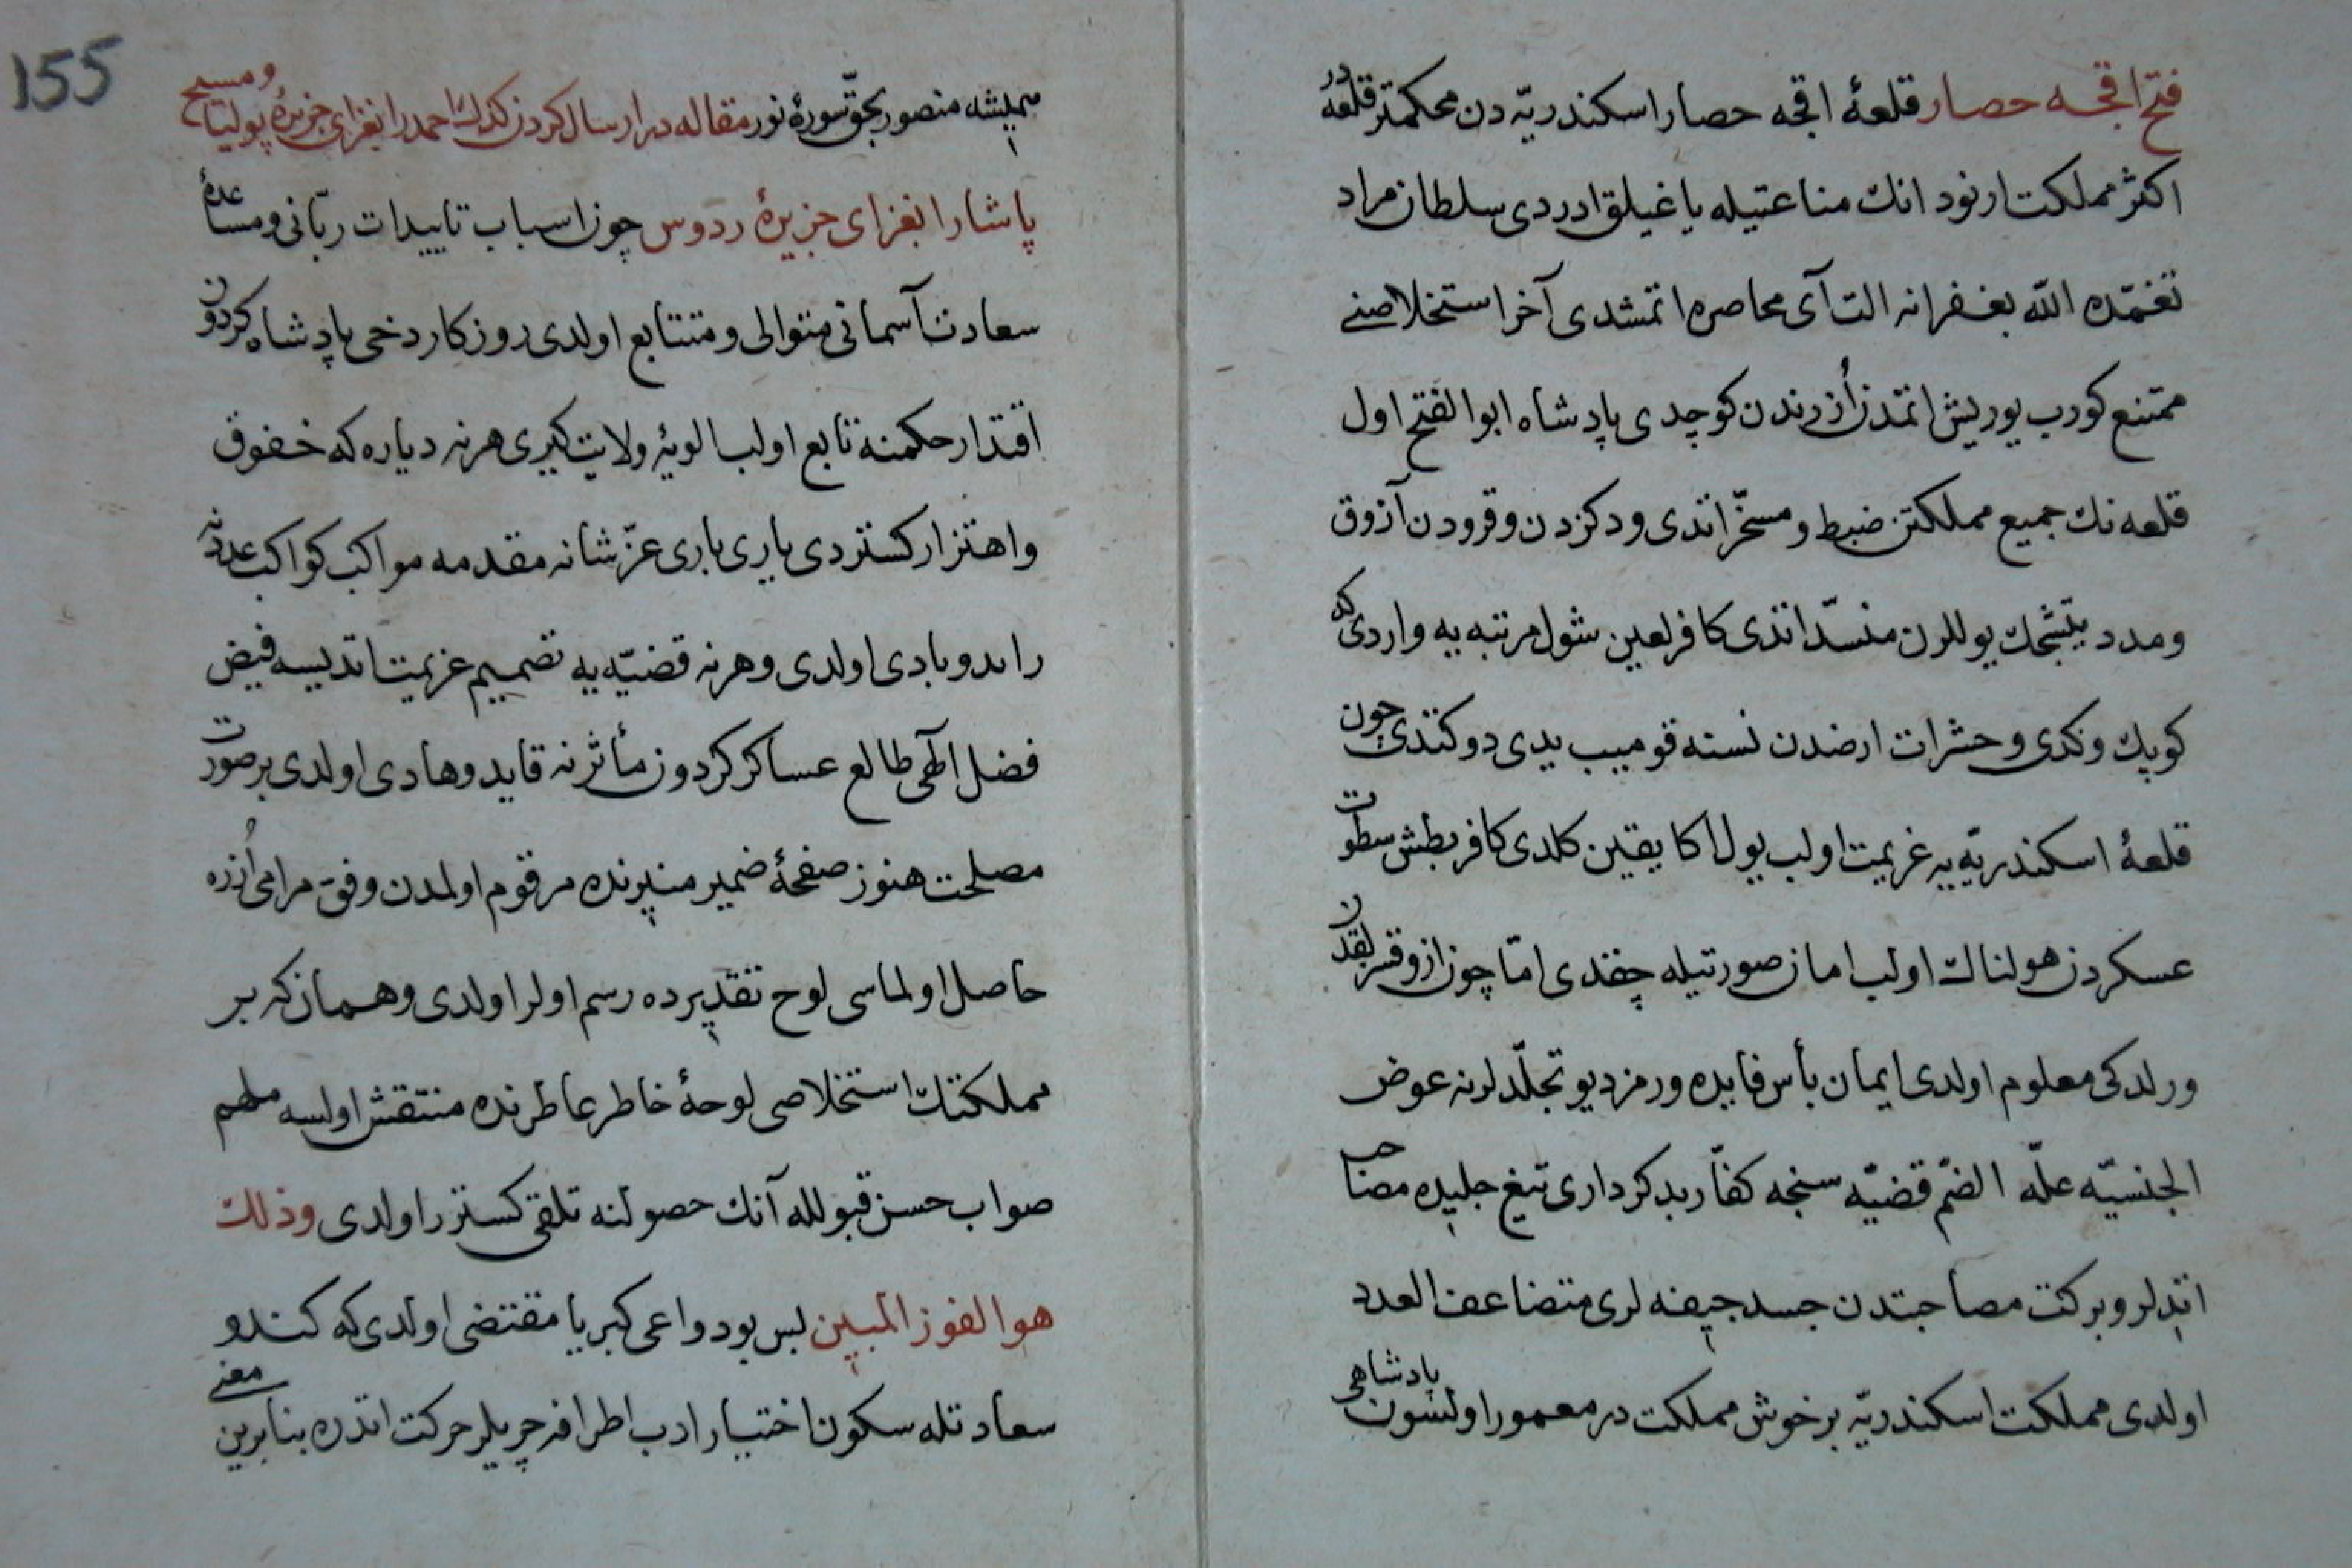 فتح اقچه حصار قلعۀ اقچه حصار اسكندريّه دن محكمتر قلعه در
اكثر مملكت ارنود انك مناعتيله ياغيلق ادردى سلطان مراد
تغمّده اللّه بغفرانه التى آى محاصره اتمشدى آخر استخلاصنى
ممتنع كورب يوريش اتمدن اُزرندن كوچدى پادشاه ابو الفتح اول
قلعه نك جميع مملكتن ضبط و مسخّر اتدى و دكزدن و قرودن آزوق
و مدد يتشجك يوللرن منسدّ اتدى كافر لعين شول مرتبه يه واردى كه
كوپك و كدى و حشرات ارضدن نسنه قوميب يدى دوكتدى چون
قلعۀ اسكندريّه يه عزيمت اولب يول اكا يقين كلدى كافر بطش سطوت
عسكردن هولناك اولب امان صورتيله چقدى امّا چون ازوقسزلقدن
ورلدكى معلوم اولدى ايمان بأس فايده ورمز ديو تجلّدلرنه عوض
الجنسيّه علّه الضّم قضيّه سنجه كفّار بدكردارى تيغ جليده مصاحب
اتديلر و بركت مصاحبتدن جسد جيفه لرى متضاعف العدد
اولدى مملكت اسكندريّه بر خوش مملكت در معمور اولسون پادشاهى
هميشه منصور بحقّ سورۀ نور مقاله در ارسال كردن كدك احمد را بغزاى جزيرۀ پوليتا و مسيح
پاشا را بغزاى جزيرۀ ردوس چون اسباب تاييدات ربّانى و مساعدۀ
سعادت آسمانى متوالى و متتابع اولدى روزكار دخى پادشاه كردون
اقتدار حكمنه تابع اولب الويۀ ولايت كيرى هر نه دياره كه خفوق
و اهتزار كستردى يارى بارى عزّ شانه مقدمه مواكب كواكب عددنه
رائد و بادى اولدى و هر نه قضيّه يه تصميم عزيمت اتديسه فيض
فضل الهى طالع عساكر كردون مأثرنه قايد و هادى اولدى بر صورت
مصلحت هنوز صفحۀ ضمير منيرنده مرقوم اولمدن وفق مرامى اُزره
حاصل اولماسى لوح تقديرده رسم اولر اولدى و همان كه بر
مملكتك استخلاصى لوحۀ خاطر عاطرنده منتقش اولسه ملهم
صواب حسن قبولله آنك حصولنه تلقى كستر راولدى وذلك
هو الفوز المبين پس بو دواعى كبريا مقتضى اولدى كه كندو
سعادتله سكون اختيار ادب اطرافه چريلر حركت اتدره بنا برين معنى
155